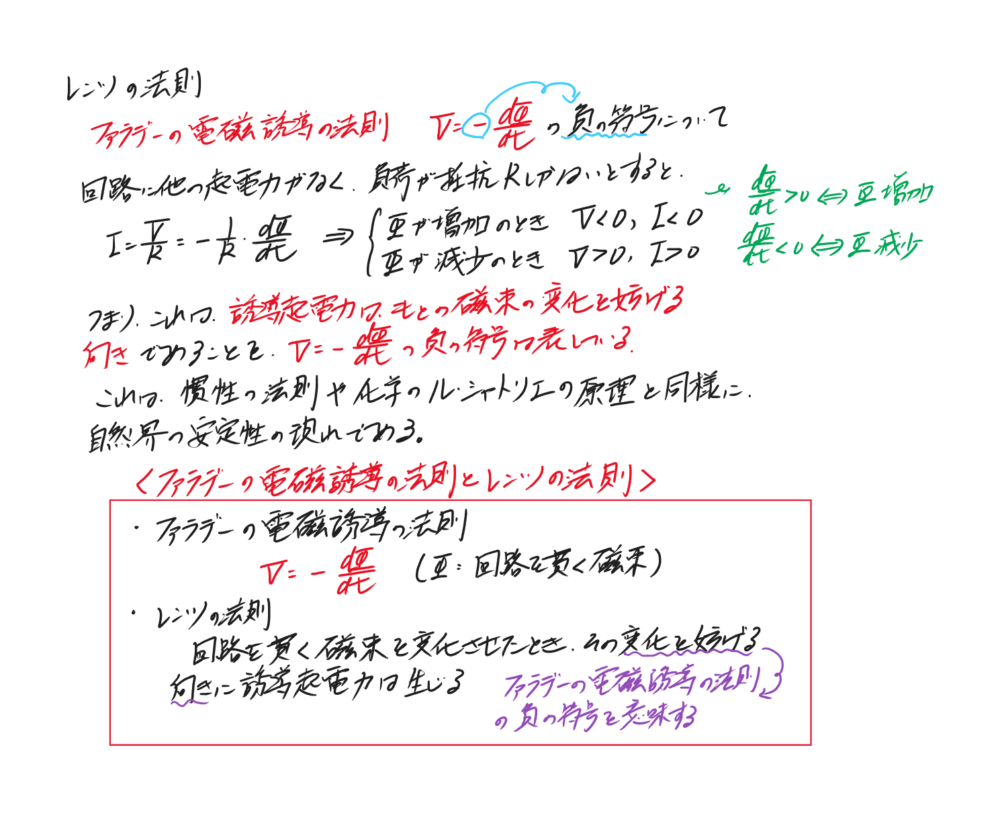 レンツの法則
ファラデーの電磁誘導の法則 V=-dΦ/dt の負の符号について
回路に他の起電力がなく、負荷が抵抗Rしかないとすると、
I=V/R=-1/R・dΦ/dt ⇒ { Φが増加のとき V<0, I<0
Φが減少のとき V>0, I>0
dΦ/dt>0 ⇔ Φ増加
dΦ/dt<0 ⇔ Φ減少
つまり、これは、誘導起電力は、もとの磁束の変化を妨げる
向きであることを、V=-dΦ/dt の負の符号は表している。
これは、慣性の法則や化学のル・シャトリエの原理と同様に、
自然界の安定性の現れである。
<ファラデーの電磁誘導の法則とレンツの法則>
・ファラデーの電磁誘導の法則
V=-dΦ/dt (Φ:回路を貫く磁束)
・レンツの法則
回路を貫く磁束を変化させたとき、その変化を妨げる
向きに誘導起電力は生じる
ファラデーの電磁誘導の法則
の負の符号を意味する